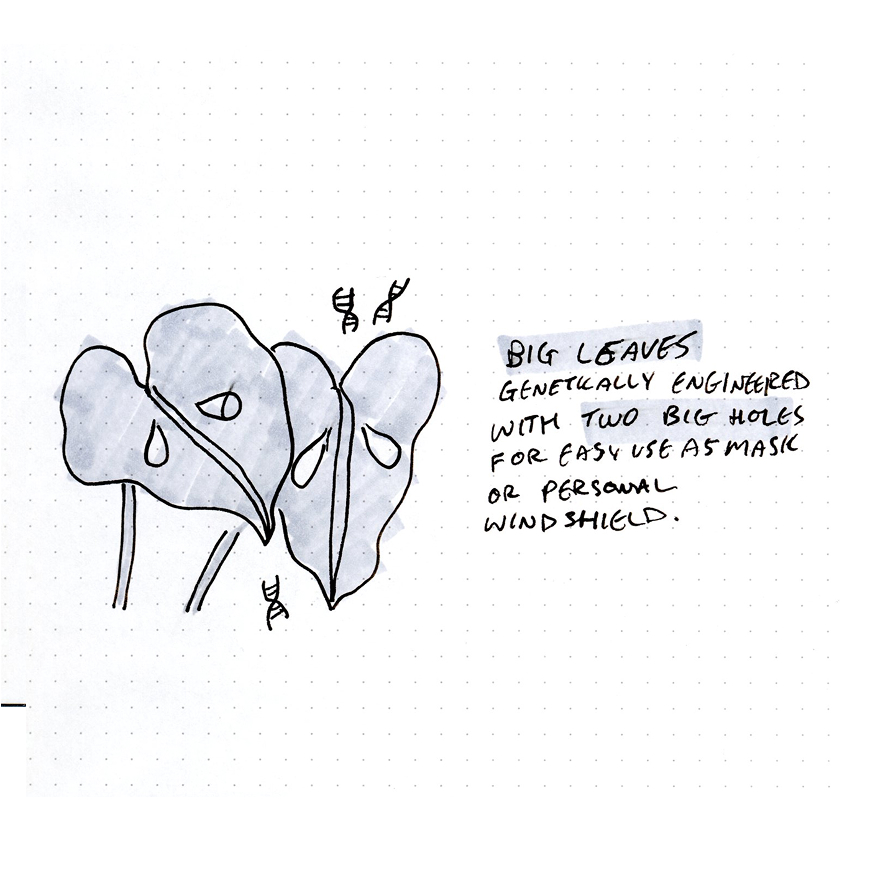 BIG LEAVES
GENETICALLY ENGINEERED
WITH TWO BIG HOLES
FOR EASY USE AS MASK
OR PERSONAL
WINDSHIELD.